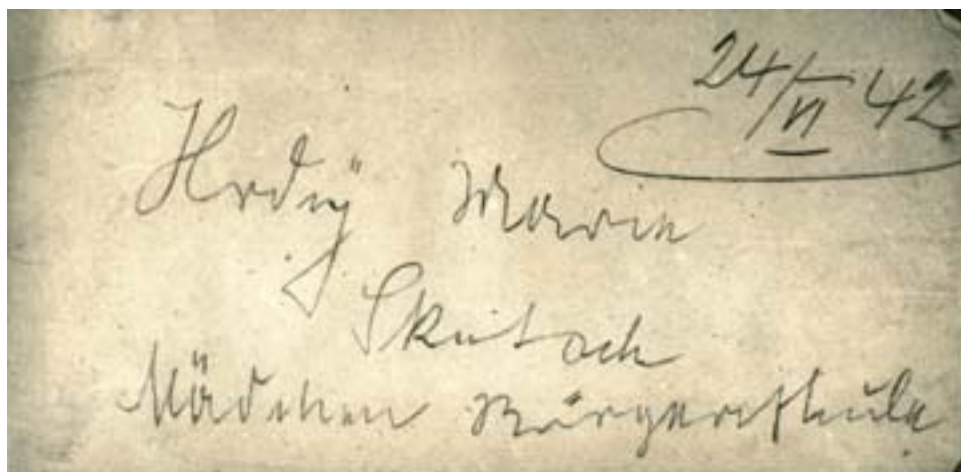 24/VI 42
Hrdý Marie
Skutsch
Mädchen Bürgerschule